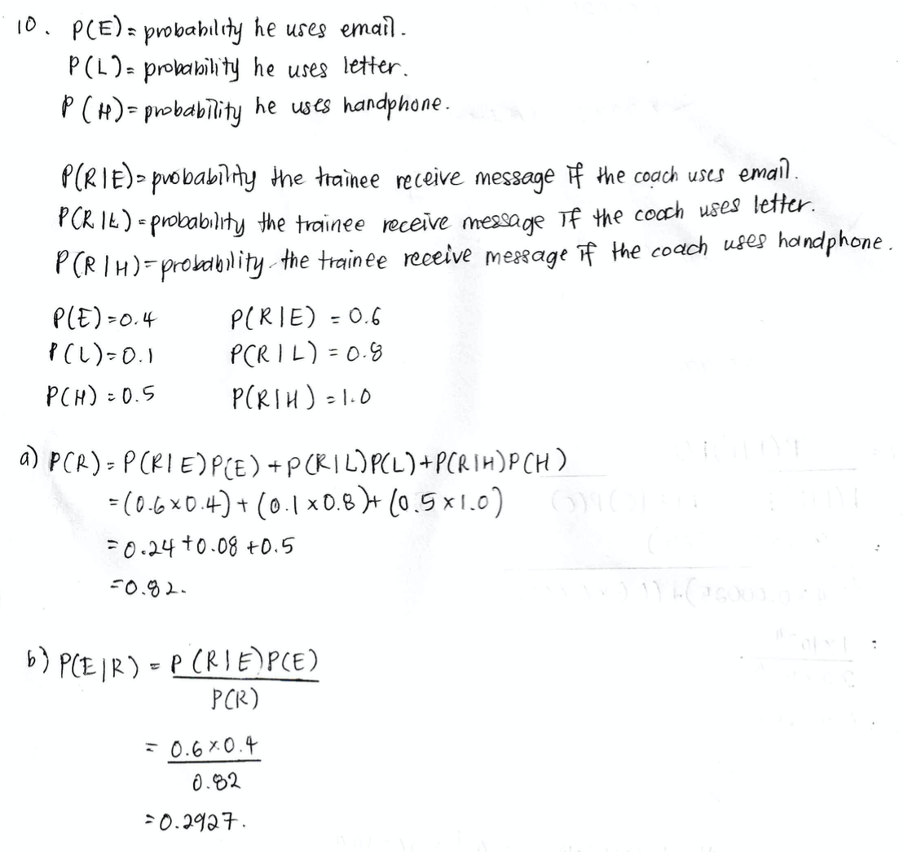 10. P(E) = probability he uses email.
P(L) = probability he uses letter.
P(H) = probability he uses handphone.
P(R|E) = probability the trainee receive message if the coach uses email.
P(R|L) = probability the trainee receive message if the coach uses letter.
P(R|H) = probability the trainee receive message if the coach uses handphone.
P(E) = 0.4 P(R|E) = 0.6
P(L) = 0.1 P(R|L) = 0.8
P(H) = 0.5 P(R|H) = 1.0
a) P(R) = P(R|E)P(E) + P(R|L)P(L) + P(R|H)P(H)
= (0.6 × 0.4) + (0.1 × 0.8) + (0.5 × 1.0)
= 0.24 + 0.08 + 0.5
= 0.82.
b) P(E|R) = P(R|E)P(E)
P(R)
= 0.6 × 0.4
0.82
= 0.2927.